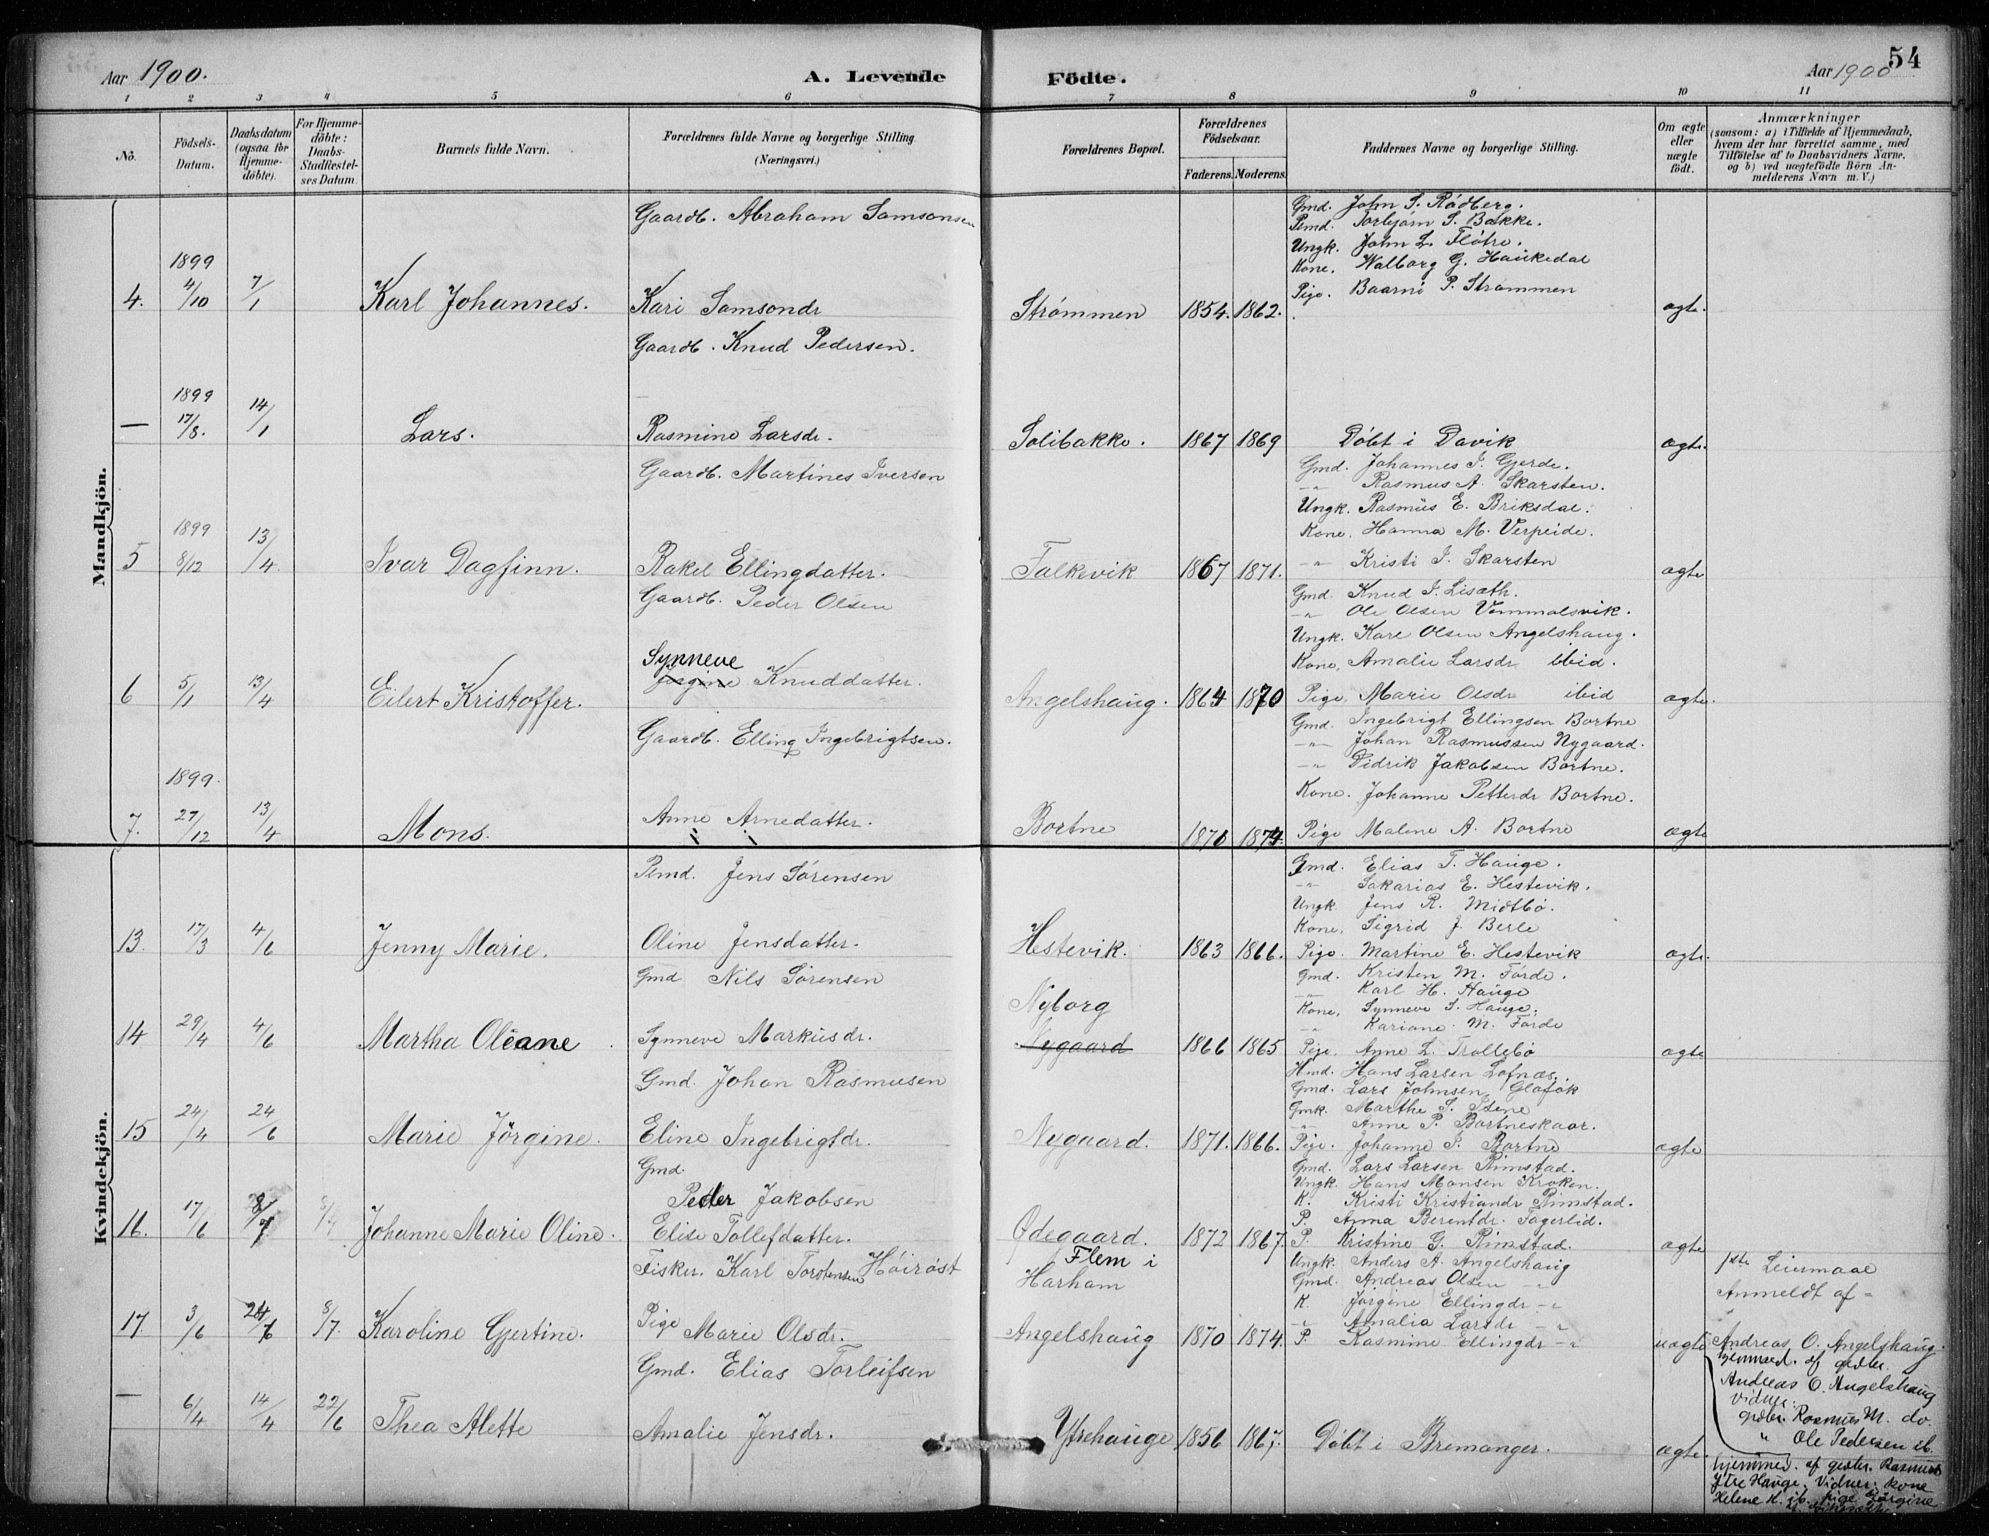 Aar 1900.
A. Levende Födte.
Aar 1900
54
1 2 3 4 5 6 7 8 9 10 11
No.
Födsels-Datum.
Daabsdatum (ogsaa for Hjemme-döbte).
For Hjemme-döbte: Daabs-Stadfæstel-ses Datum.
Barnets fulde Navn.
Forældrenes fulde Navne og borgerlige Stilling (Næringsvei.)
Forældrenes Bopæl.
Forældrenes Födselsaar.
Faderens. Moderens.
Faddernes Navne og borgerlige Stilling.
Om ægte eller uægte födt.
Anmærkninger
(saasom: a) i Tilfælde af Hjemmedaab, hvem der har forrettet samme, med Tilföielse af to Daabsvidners Navne, og b) ved uægtefödte Börn An-melderens Navn m. V.)
Mandkjön.
Gaardb. Abraham Samsonsen
Gmd. John S. Rødberg.
Pemd. Torbjørn S. Bakke.
Ungk. John L. Fløtre.
Kone. Walborg G. Haukedal
4. 1899 4/10 7/1 Karl Johannes. Kari Samsondr Strømmen 1854. 1862. Pige. Baarni P. Strømmen ægte.
Gaardb. Knud Pedersen.
— 1899 17/8. 14/1 Lars. Rasmine Larsdr. Solibakke. 1867 1869 Døbt i Davik ægte.
Gaardb. Martines Iversen
Gmd. Johannes I. Gjerde.
-"- Rasmus A. Skarsten.
Ungk. Rasmus E. Briksdal.
Kone. Hanna M. Verpeide.
5 1899 8/12 13/4 Ivar Dagfinn. Rakel Ellingdatter. Falkevik 1867 1871. " Kristi I. Skarsten ægte
Gaardb. Peder Olsen
Gmd. Knud J. Lisæth.
-"- Ole Olsen Vemmelsvik.
Ungk. Karl Olsen Angelshaug.
Kone, Amalie Larsdr ibid.
6 5/1 13/4 Eilert Kristoffer. Synneve Jørgine Knuddatter. Angelshaug. 1864 1870 Pige, Marie Olsdr ibid ægte.
Gaardb. Elling Ingebrigtsen.
Gmd. Ingebrigt Ellingsen Bortne
-"- Johan Rasmussen Nygaard.
-"- Didrik Jakobsen Bortne.
Kone. Johanne Petterdr Bortne.
7. 1899. 27/12 13/4 Mons. Anne Arnedatter. Bortne 1870 1874. Pige Malene A. Bortne ægte
Kvindekjön.
Pemd. Jens Sørensen
Gmd. Elias T. Hauge.
-"- Sakarias E. Hestevik.
Ungk. Jens R. Midtbø.
Kone, Sigrid J. Berle
13. 17/3 4/6 Jenny Marie. Oline Jensdatter. Hestevik. 1863 1866. Pige. Martine E. Hestevik ægte.
Gmd Nils Sørensen
Gmd. Kristen M. Førde.
-"- Karl H. Hauge
Kone, Synneve S. Hauge.
-"- Kariane M. Førde
14 29/4 4/6 Martha Oleane. Synneve Markusdr. Nyborg Nygaard 1866 1865 Pige, Anne L. Trollebø ægte
Gmd. Johan Rasmusen
Hmd. Hans Larsen Lofnæs.
Gmd. Lars Johnsen Gloføk
Gmk. Marthe S. Isene
-"- Anne P. Bortneskaar.
15 24/4 24/6 Marie Jörgine. Eline Ingebrigtdr. Nygaard. 1871. 1866. Pige. Johanne P. Bortne ægte
Gmd. Peder Jakobsen
Gmd. Lars Larsen Rimstad.
Ungk. Hans Monsen Kroken.
K. Kristi Kristiandr Rimstad.
P. Anna Berentdr. Fagerlid.
16. 17/6 8/7 Johanne Marie Oline. Elise Tollefdatter. Ødegaard. 1872 1867. P. Kristine G. Rimstad. ægte
Fisker. Karl Torstensen Höirøst
Flem i Harham
Ungk. Anders A. Angelshaug
Gmd. Andreas Olsen -"-
K. Jørgine Ellingdr -"-
-"- Amalia Larsdr -"-
1ste Leiermaal
Anmeldt af =
17. 3/6 24/6 8/7. Karoline Gjertine. Pige Marie Olsdr. Angelshaug 1870 1874. P. Rasmine Ellingdr -"- uægte Andreas O. Angelshaug.
hjemmed. af gedbr.
Andreas O. Angelshaug
Vidner:
gedbr. Rasmus M. do.
" Ole Pedersen ib.
Gmd. Elias Torleifsen
— 6/4 14/4 22/6 Thea Alette Amalie Jensdr. Ytrehauge 1856 1867. Døbt i Bremanger. ægte.
hjemmed. af gedbr. Rasmus
Ytre Hauge. Vidner: kone
Helene H. ib. pige Jörgine